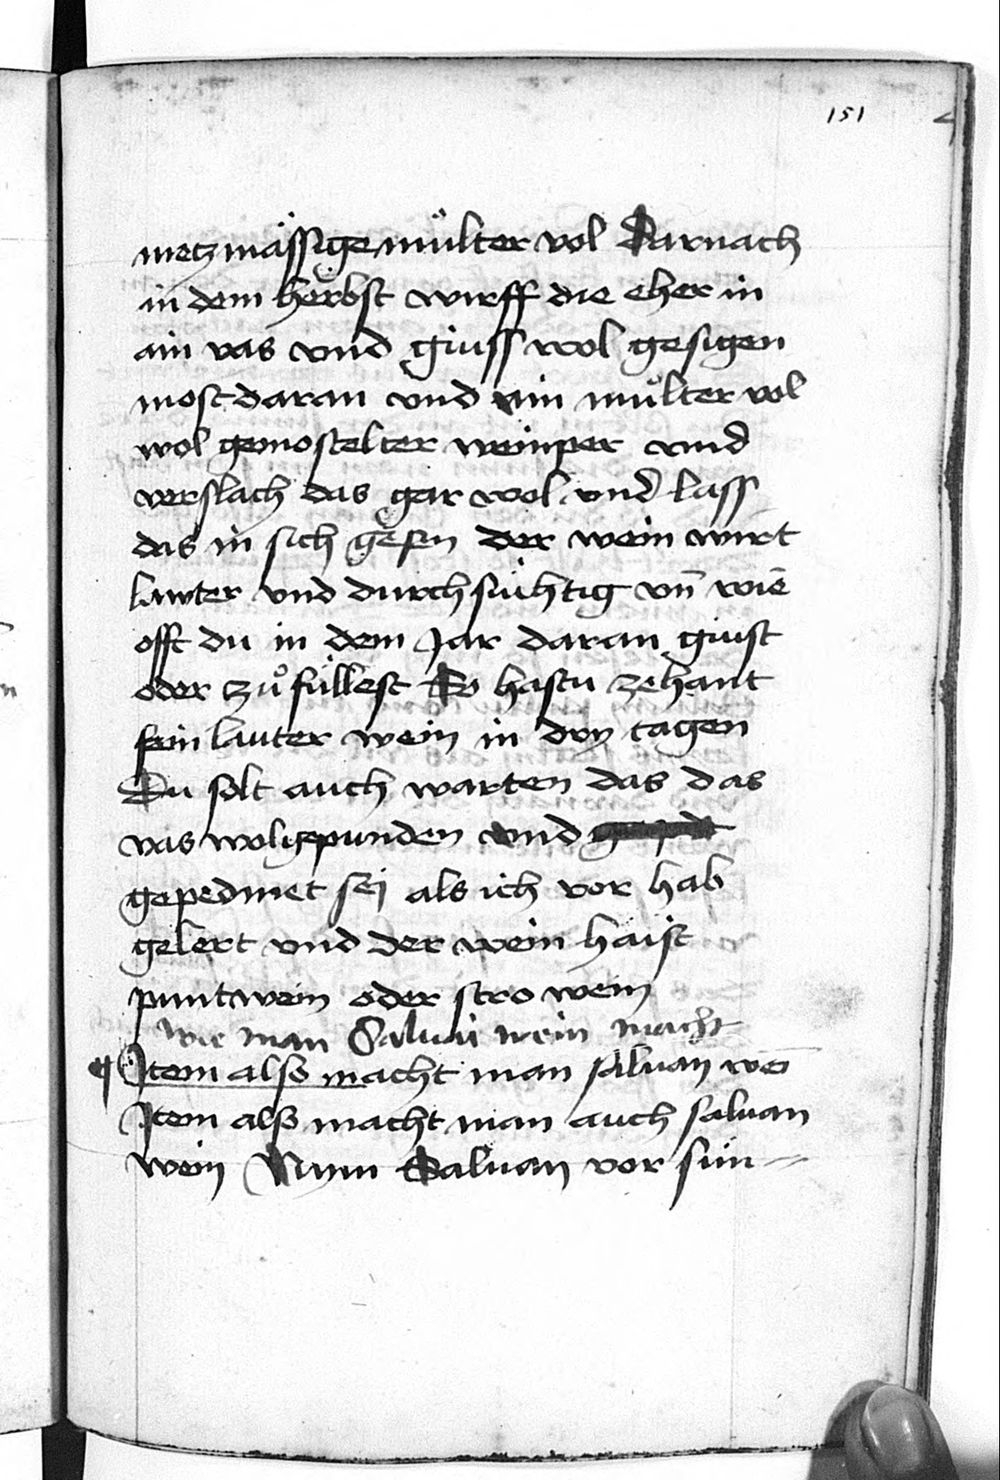 151
metzmässige mülter vol Darnach
in dem herbst wirff die eher in
ain vas vnd giuss wol gesigen
most daran vnd ain mülter vol
wol gemostelter weinper vnd
verslach das gar wol vnd lass
das in sich gesen der wein wirt
lawter vnd durchsichtig vn̄ wie
offt du in dem Jar daran giust
oder zůfüllest So hastu zehant
fein lauter wein in dry tagen
Du solt auch warten das das
vas wolgepunden vnd
gepedmet sej als ich vor hab
gelert vnd der wein haist
puntwein oder stro wein
Wie man Saluai wein macht
Item also macht man saluan wē
Item also macht man auch saluan
wein Nym Saluan vor sün=